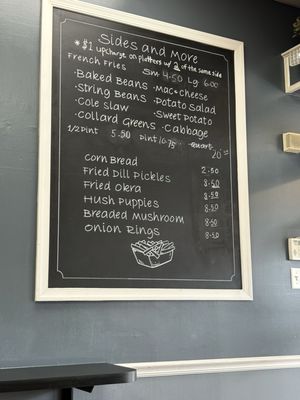 Sides and More
*$1 upcharge on platters w/ 2 of the same side
French Fries Sm 4.50 Lg 6.00
·Baked Beans ·Mac & Cheese
·String Beans ·Potato Salad
·Cole Slaw ·Sweet Potato
·Collard Greens ·Cabbage
1/2 Pint 5.50 Pint 10.75 Quart
Corn Bread 2.50
Fried Dill Pickles 8.50
Fried Okera 8.50
Hush Puppies 8.50
Breaded Mushroom 8.50
Onion Rings 8.50